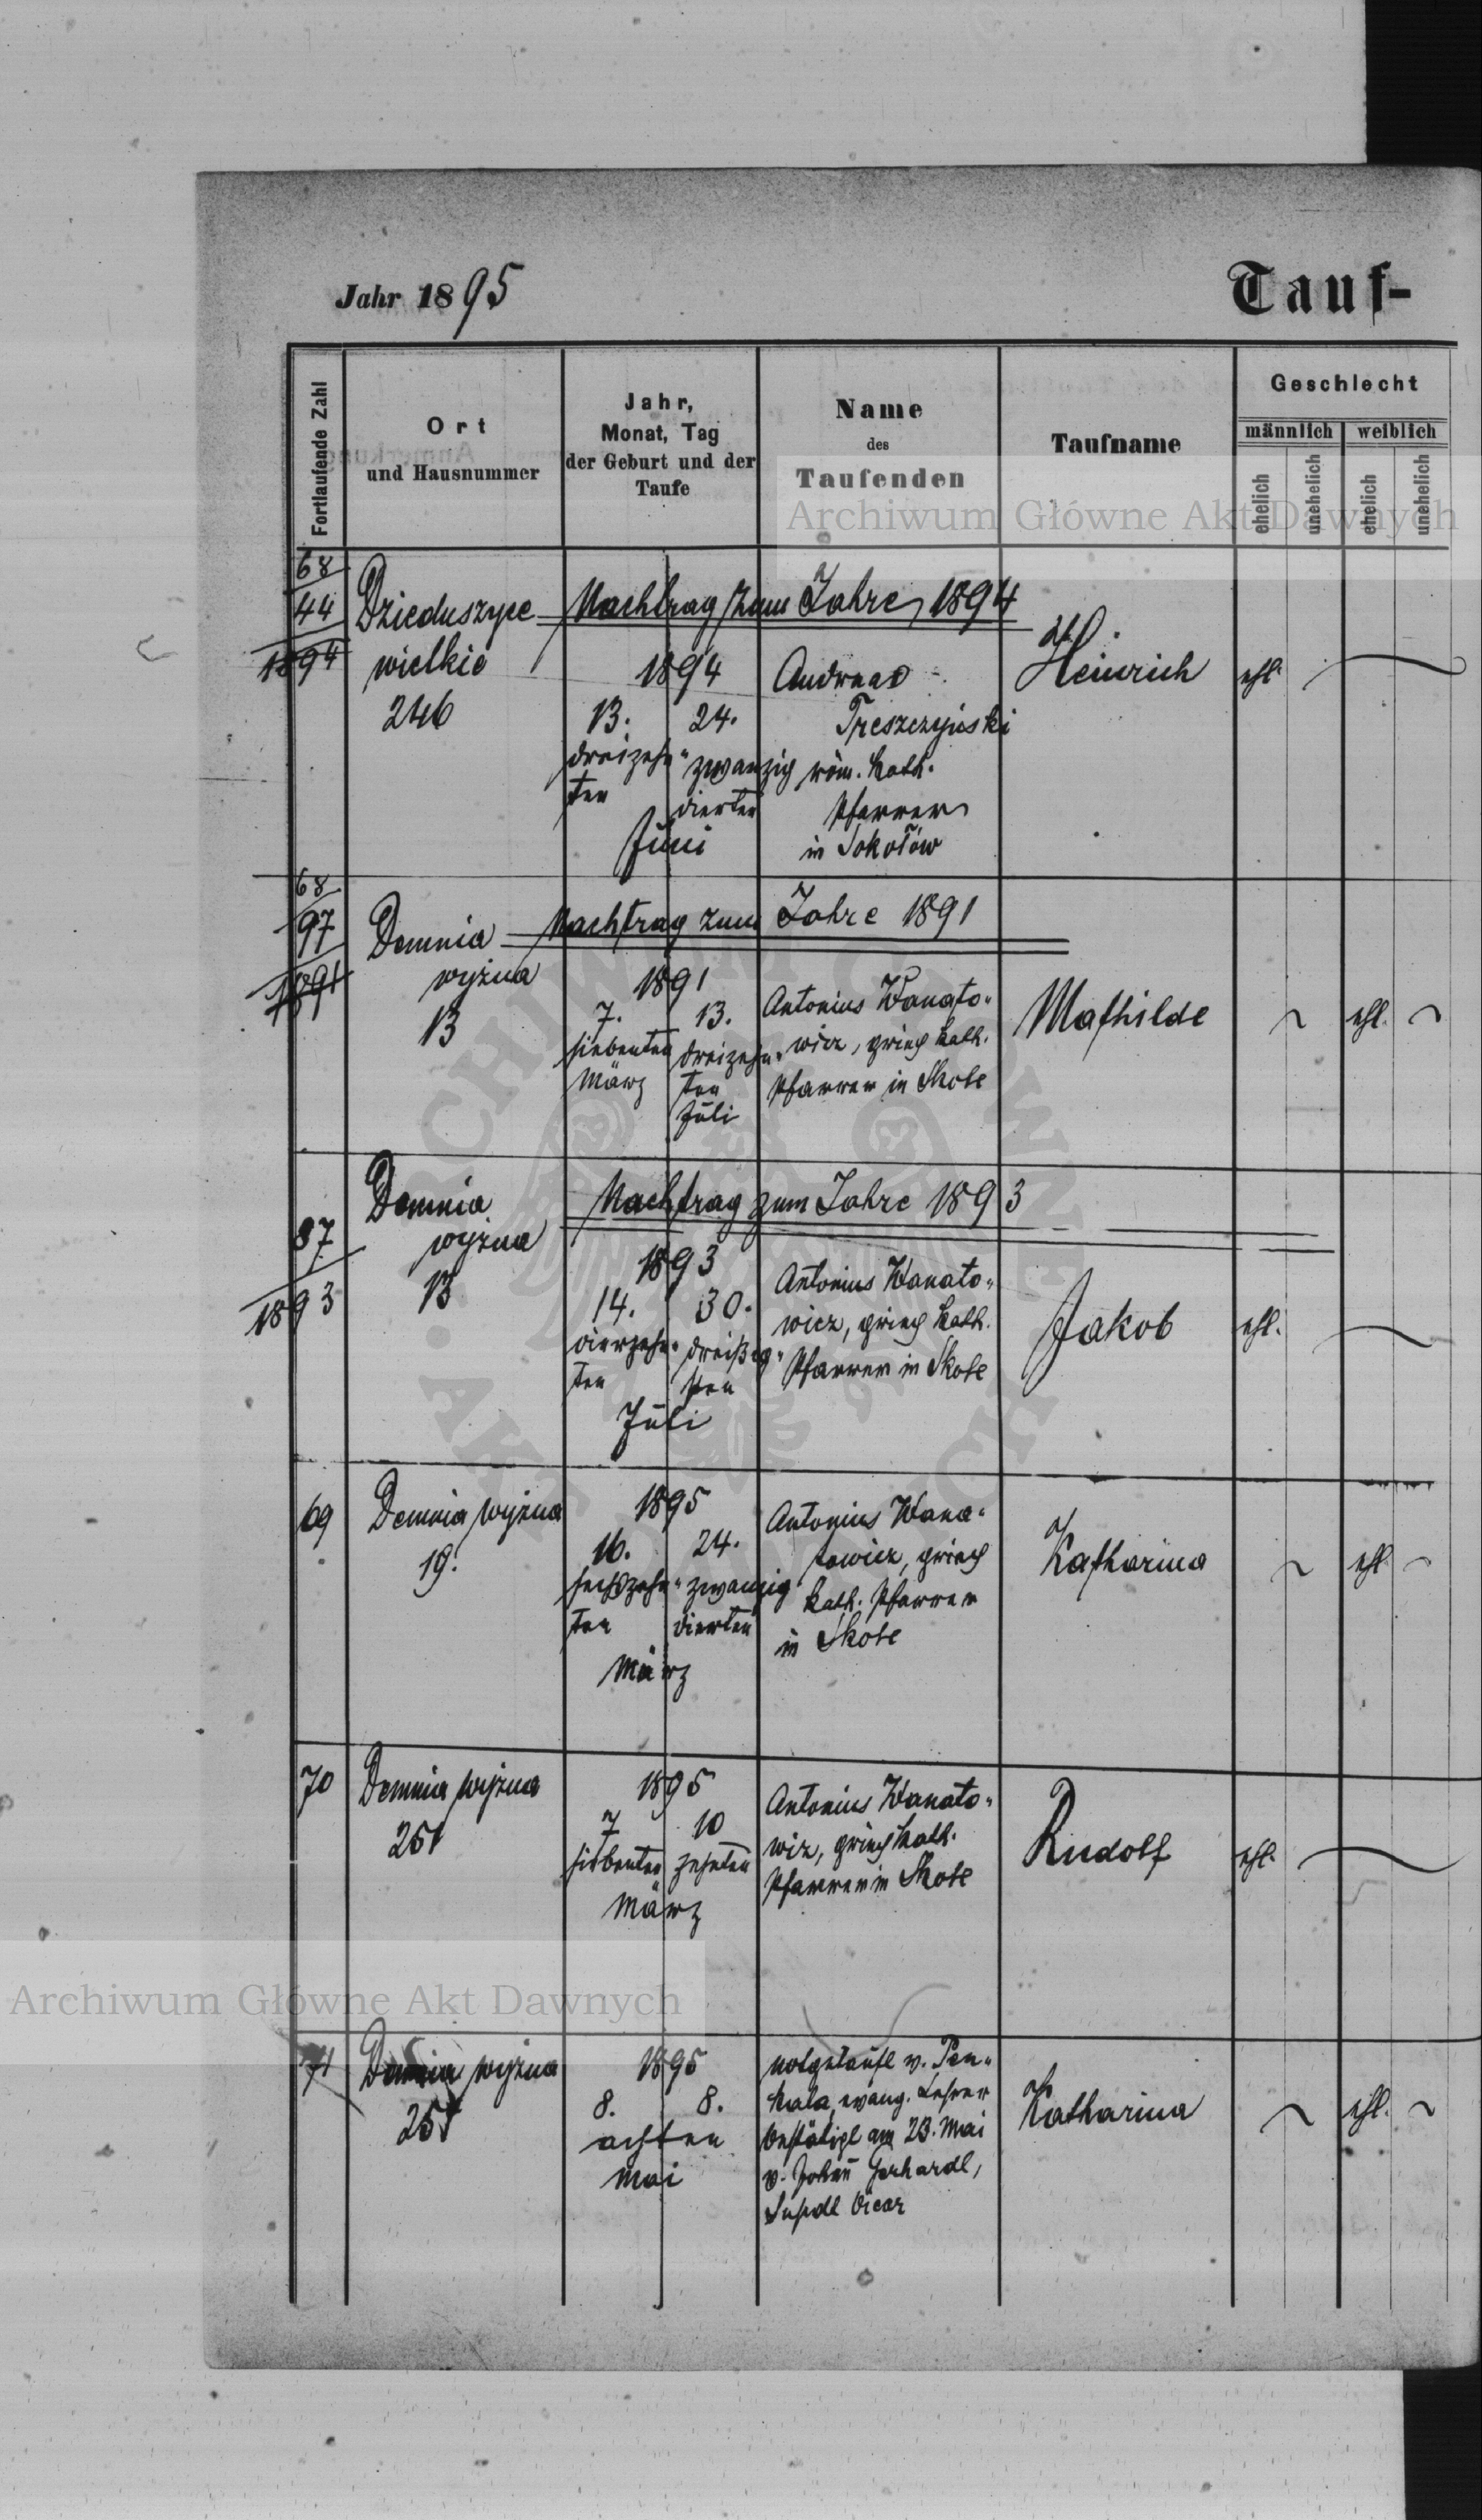 Jahr 1895
Tauf-
Fortlaufende Zahl
Ort
und Hausnummer
Jahr,
Monat, Tag
der Geburt und der
Taufe
Name
des
Taufenden
Taufname
Geschlecht
männlich
weiblich
ehelich
unehelich
ehelich
unehelich
Archiwum Główne Akt Dawnych
68
44
1894
Dzieduszyce
wielkie
246
Nachtrag zum Jahre 1894
1894
13. 24.
dreizehn- zwanzig
ten vierten
Juni
Andreas
Treszczyński
röm. kath.
Pfarrer
in Sokołów
Heinrich
ehl.
68
97
1891
Demnia
wyżna
13
Nachtrag zum Jahre 1891
1891
7. 13.
siebenten dreizehn-
März ten
Juli
Antonius Wanato-
wicz, griech kath.
Pfarrer in Skole
Mathilde
ehl.
37
1893
Demnia
wyżna
13
Nachtrag zum Jahre 1893
1893
14. 30.
vierzehn- dreißig-
ten sten
Juli
Antonius Wanato-
wicz, griech kath.
Pfarrer in Skole
Jakob
ehl.
69
Demnia wyżna
19.
1895
16. 24.
sechszehn- zwanzig
ten vierten
März
Antonius Wana-
towicz, griech
kath. Pfarrer
in Skole
Katharina
ehl.
70
Demnia wyżna
251
1895
7 10
siebenten zehnten
März
Antonius Wanato-
wiz, griech kath.
Pfarrer in Skole
Rudolf
ehl.
Archiwum Główne Akt Dawnych
71
Demnia wyżna
251
1895
8. 8.
achten
Mai
notgetauft v. Pen-
kala, evang. Lehrer
bestätigt am 23. Mai
v. Johann Gerhardt,
Supdt Vicar
Katharina
ehl.